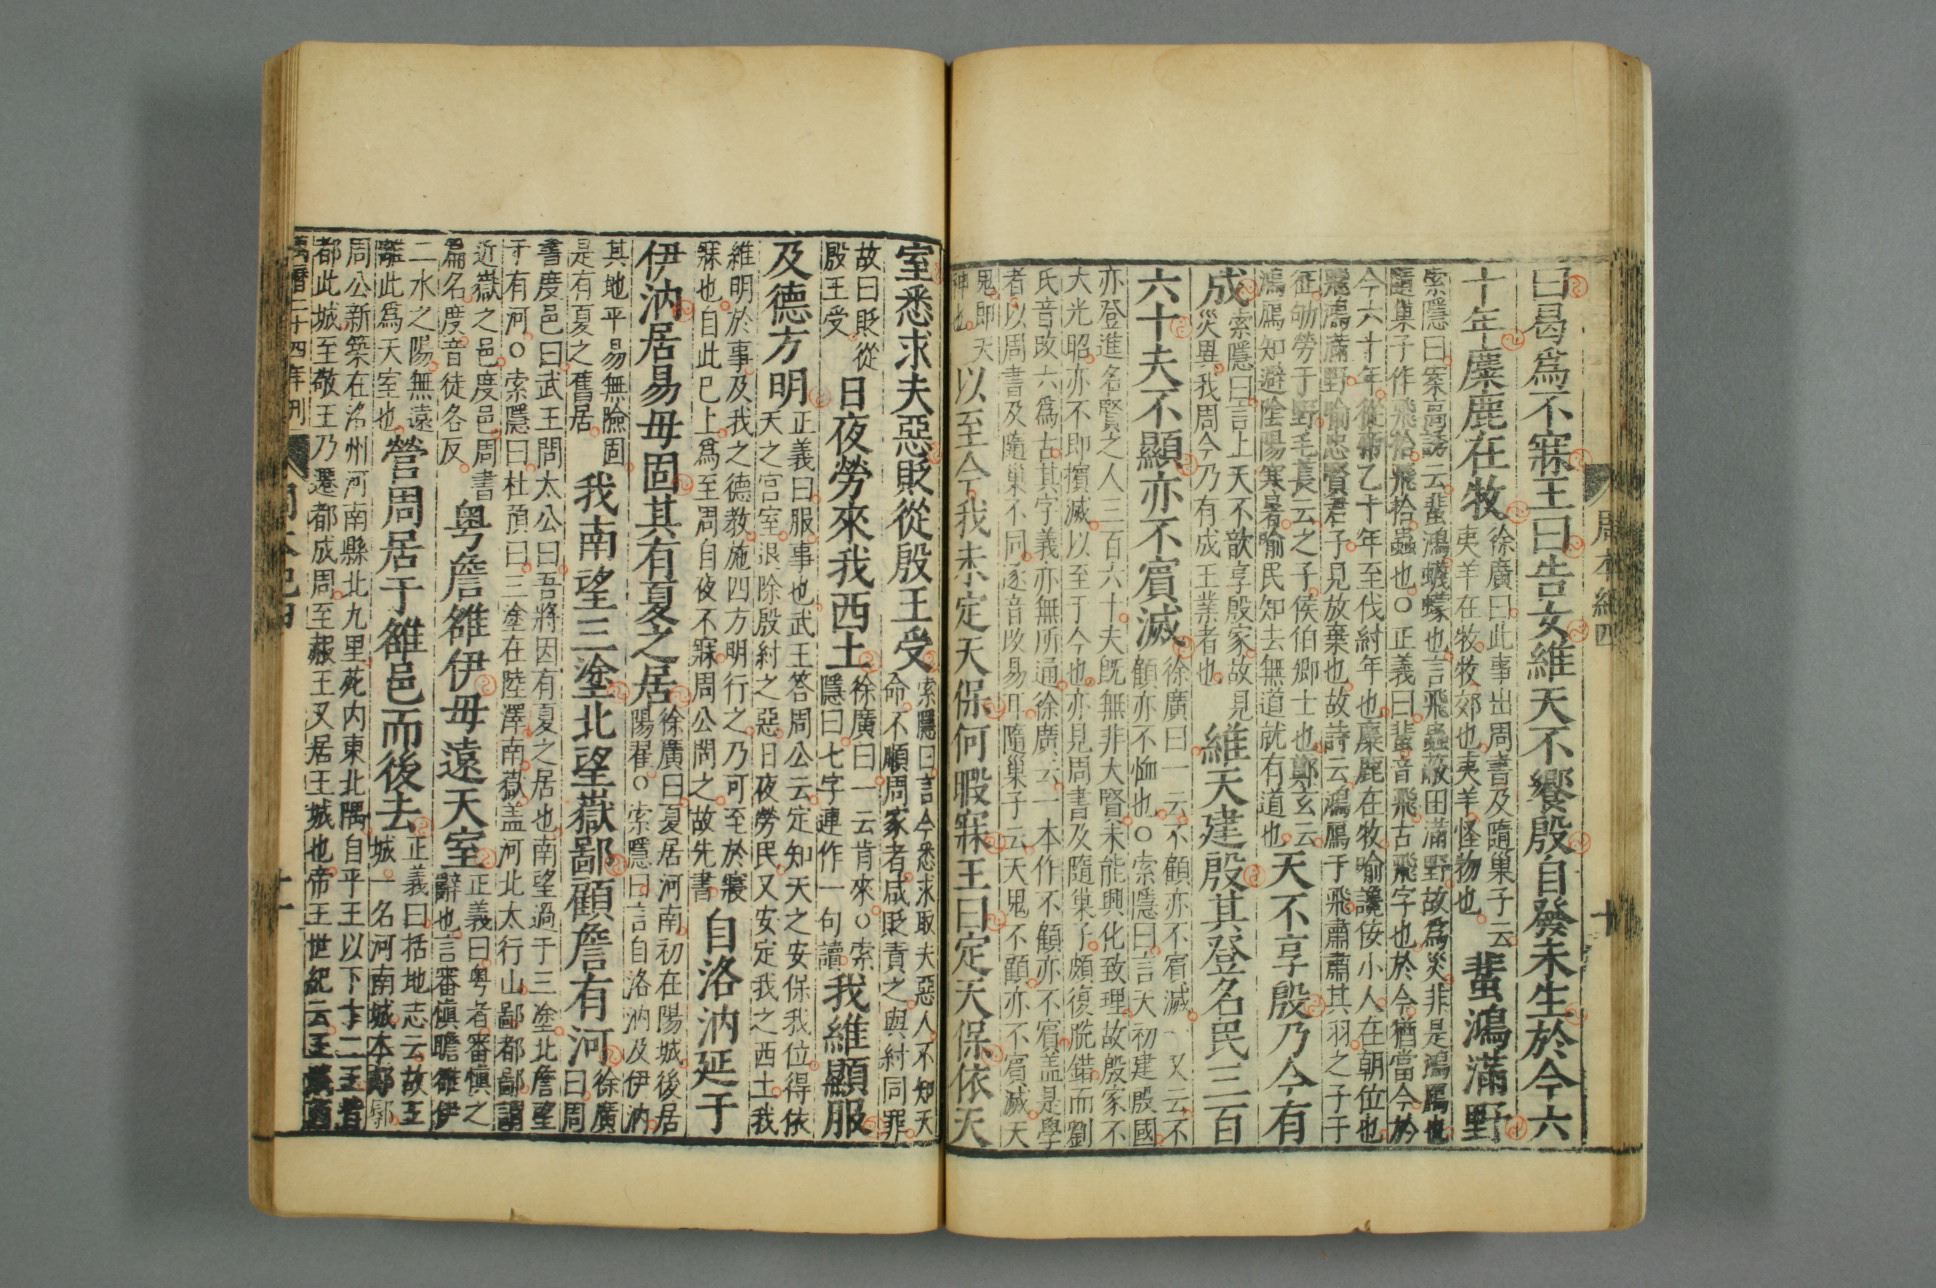 周本紀四
十
曰曷爲不寐王曰告女維天不饗殷自發未生於今六
十年麋鹿在牧徐廣曰此事出周書及隨巢子云
夷羊在牧牧郊也夷羊怪物也蜚鴻滿野
索隱曰案高誘云蜚鴻蠛蠓也言飛蟲蔽田滿野故爲災非是鴻鴈也
隨巢子作飛拾飛拾蟲也○正義曰蜚音飛古飛字也於今猶當今於
今六十年從帝乙十年至伐紂年也麋鹿在牧喻讒佞小人在朝位也
飛鴻滿野喻忠賢君子見放棄也故詩云鴻鴈于飛肅肅其羽之子于
征劬勞于野毛萇云之子侯伯卿士也鄭玄云
鴻鴈知避陰陽寒暑喻民知去無道就有道也天不享殷乃今有
成索隱曰言上天不歆享殷家故見
災異我周今乃有成王業者也維天建殷其登名民三百
六十夫不顯亦不賓滅徐廣曰一云不顧亦不賓滅一又云不
顧亦不恤也○索隱曰言天初建殷國
亦登進名賢之人三百六十夫旣無非大賢未能興化致理故殷家不
大光昭亦不卽擯滅以至于今也亦見周書及隨巢子頗復脫錯而劉
氏音改六爲古其字義亦無所通徐廣云一本作不顧亦不賓蓋是學
者以周書及隨巢不同逐音改易耳隨巢子云天鬼不顧亦不賓滅天
鬼卽天
神也以至今我未定天保何暇寐王曰定天保依天
室悉求夫惡貶從殷王受索隱曰言今悉求取夫惡人不知天
命不順周家者咸貶責之與紂同罪
故曰貶從
殷王受日夜勞來我西土徐廣曰一云肯來○索
隱曰七字連作一句讀我維顯服
及德方明正義曰服事也武王答周公云定知天之安保我位得依
天之宮室退除殷紂之惡日夜勞民又安定我之西土我
維明於事及我之德教施四方明行之乃可至於寢
寐也自此已上爲至周自夜不寐周公問之故先書自洛汭延于
伊汭居易毋固其有夏之居徐廣曰夏居河南初在陽城後居
陽翟○索隱曰言自洛汭及伊汭
其地平易無險固
是有夏之舊居我南望三塗北望嶽鄙顧詹有河徐廣
曰周
書度邑曰武王問太公曰吾將因有夏之居也南望過于三塗北詹望
于有河○索隱曰杜預曰三塗在陸渾南嶽蓋河北太行山鄙都鄙謂
近嶽之邑度邑周書
篇名度音徒各反粤詹雒伊毋遠天室正義曰粤者審愼之
辭也言審愼瞻雒伊
二水之陽無遠
離此爲天室也營周居于雒邑而後去正義曰括地志云故王
城一名河南城本郟鄏
周公新築在洛州河南縣北九里苑内東北隅自平王以下十二王皆
都此城至敬王乃遷都成周至赧王又居王城也帝王世紀云王
萬曆二十四年刊
周本紀四
十一